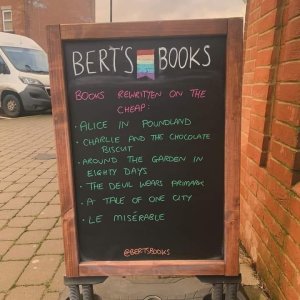 BERT'S BOOKS
BOOKS REWRITTEN ON THE
CHEAP:
· ALICE IN POUNDLAND
· CHARLIE AND THE CHOCOLATE
BISCUIT
· AROUND THE GARDEN IN
EIGHTY DAYS
· THE DEVIL WEARS PRIMARK
· A TALE OF ONE CITY
· LE MISÉRABLE
@BERTSBOOKS